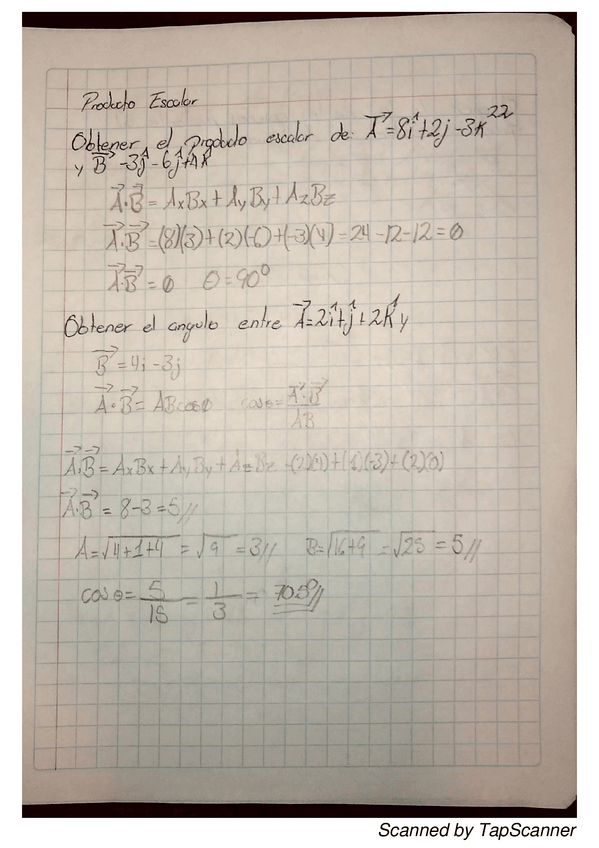 Producto Escalar
Obtener el producto escalar de: A⃗=8î+2j-3k 22
y B⃗ -3ĵ-6ĵ+4k̂
A⃗·B⃗=AxBx+AyBy+AzBz
A⃗·B⃗=(8)(3)+(2)(-6)+(-3)(4)=24-12-12=0
A⃗·B⃗=0 θ=90°
Obtener el angulo entre A⃗=2î+ĵ+2k̂ y
B⃗=4i-3j
A⃗·B⃗=ABcosθ cosθ=A⃗·B⃗/AB
A⃗·B⃗=AxBx+AyBy+AzBz=(2)(4)+(1)(-3)+(2)(0)
A⃗·B⃗=8-3=5//
A=√4+1+4=√9=3// B=√16+9=√25=5//
cosθ=5/15=1/3=70.5°//
Scanned by TapScanner